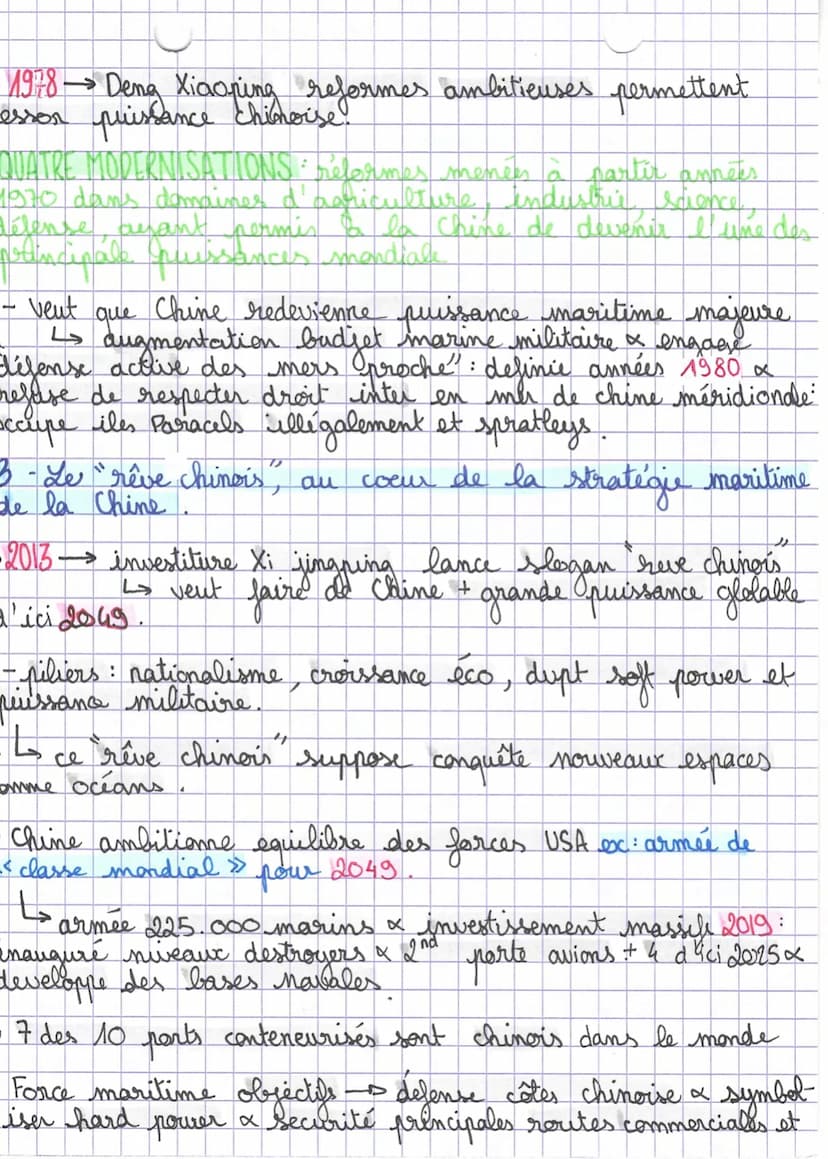 1978 → Deng Xiaoping reformes ambitieuses permettent
essor puissance chinoise.
QUATRE MODERNISATIONS : réformes menées à partir années
1970 dans domaines d'agriculture, industrie, science,
défense, ayant permis à la Chine de devenir l'une des
principale puissances mondiale
- veut que Chine redevienne puissance maritime majeure
↳ augmentation budget marine militaire & engage
défense active des mers "proche" : definie années 1980 &
refuse de respecter droit inter en mer de chine méridionale :
occupe iles Paracels illégalement et spratleys.
3 - Le "rêve chinois", au coeur de la stratégie maritime
de la Chine.
- 2013 → investiture Xi jingping lance slogan "reve chinois"
↳ veut faire de Chine + grande puissance globable
d'ici 2049.
- piliers : nationalisme, croissance éco, dvpt soft power et
puissance militaire.
↳ ce "rêve chinois" suppose conquête nouveaux espaces
omme océans.
Chine ambitionne equilibre des forces USA ex : armée de
« classe mondial » pour 2049.
↳ armée 225.000 marins & investissement massifs 2019 :
inauguré niveaux destroyers & 2nd porte avions + 4 d'ici 2025 &
developpe des bases navales.
- 7 des 10 ports conteneurisés sont chinois dans le monde
Force maritime objectifs → défense côtes chinoise & symbol-
iser hard power & securité principales routes commerciales et